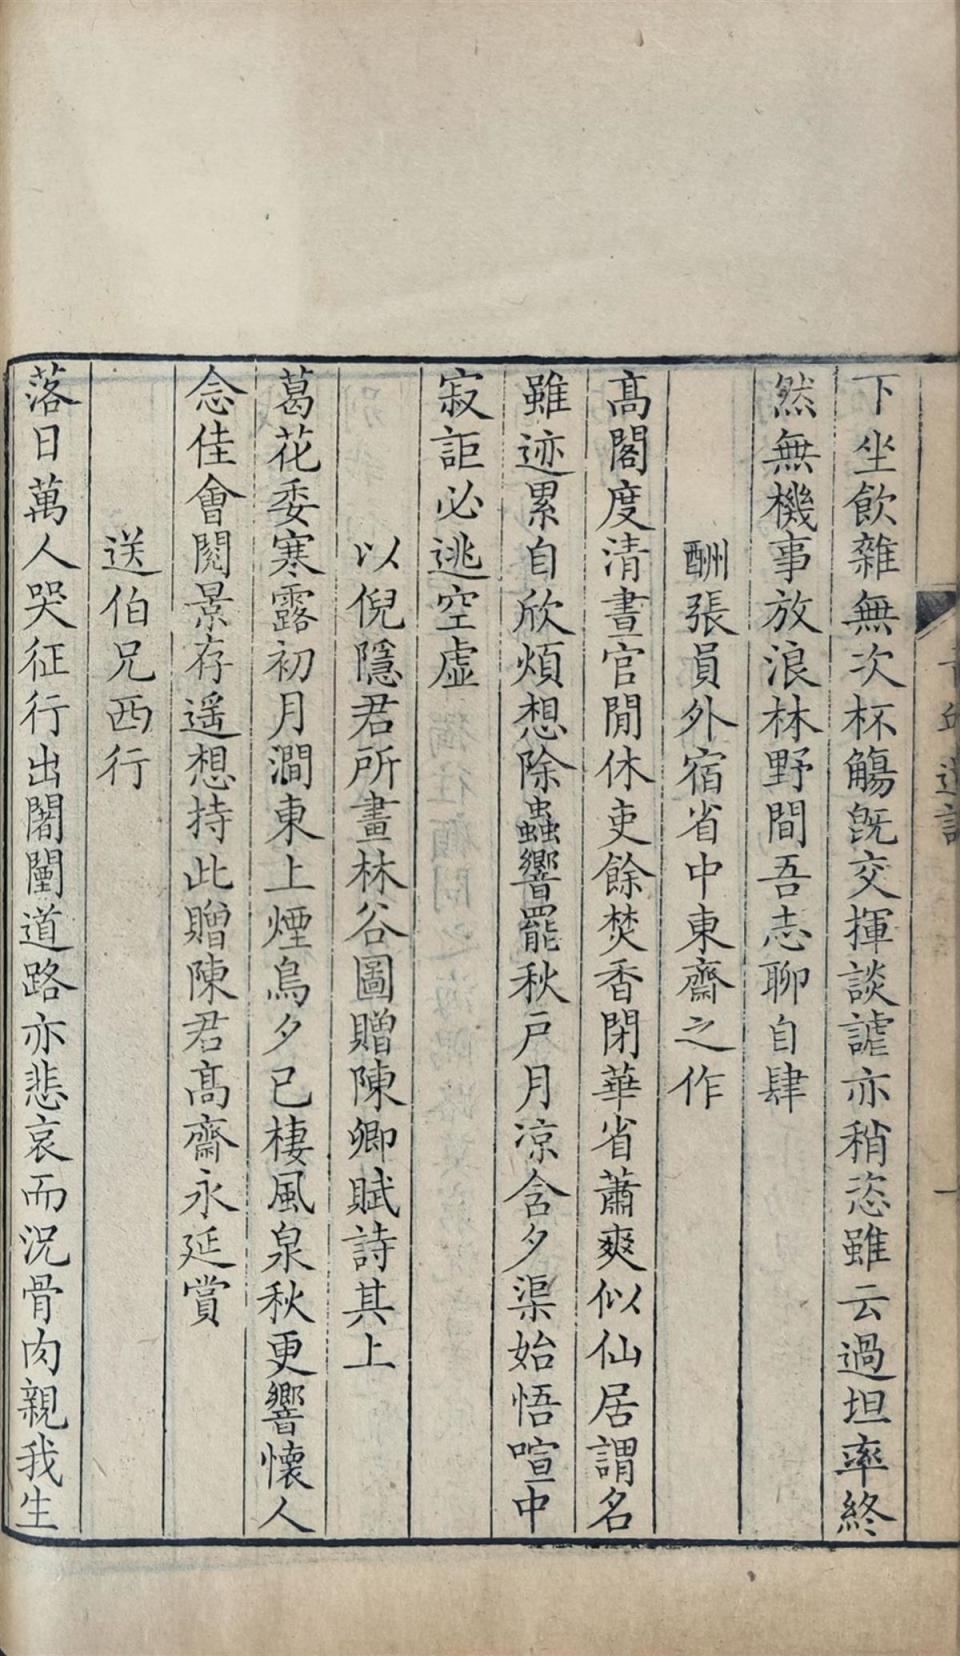 下坐飲雜無次杯觴旣交揮談謔亦稍恣雖云過坦率終
然無機事放浪林野間吾志聊自肆
酬張員外宿省中東齋之作
髙閣度清晝官閒休吏餘焚香閉華省蕭爽似仙居謂名
雖迹累自欣煩想除蟲響罷秋戶月涼含夕渠始悟喧中
寂詎必逃空虛
以倪隱君所畫林谷圖贈陳卿賦詩其上
葛花委寒露初月澗東上煙鳥夕已棲風泉秋更響懷人
念佳會閱景存遥想持此贈陳君髙齋永延賞
送伯兄西行
落日萬人哭征行出闍闉道路亦悲哀而況骨肉親我生